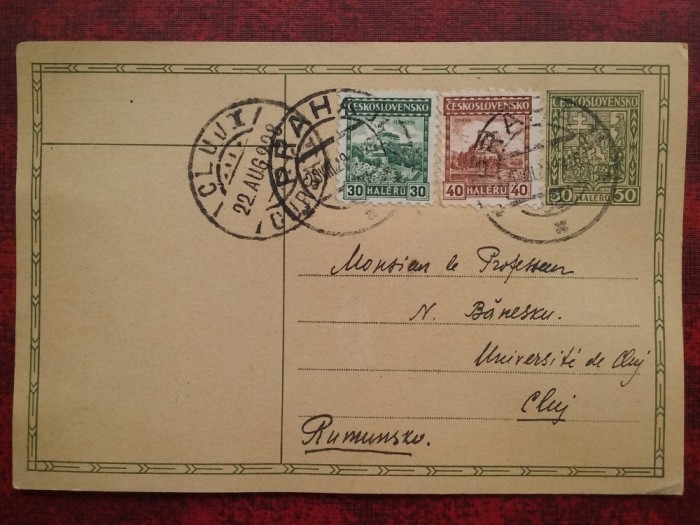 CLUJ
22.AUG.928
PRAHA
ČESKOSLOVENSKO
30 HALÉRŮ 30
ČESKOSLOVENSKO
40 HALÉRŮ 40
ČESKOSLOVENSKO
50 HALÉRŮ 50
Monsieur le Professeur
N. Bănesku.
Université de Cluj
Cluj
Rumunsko.